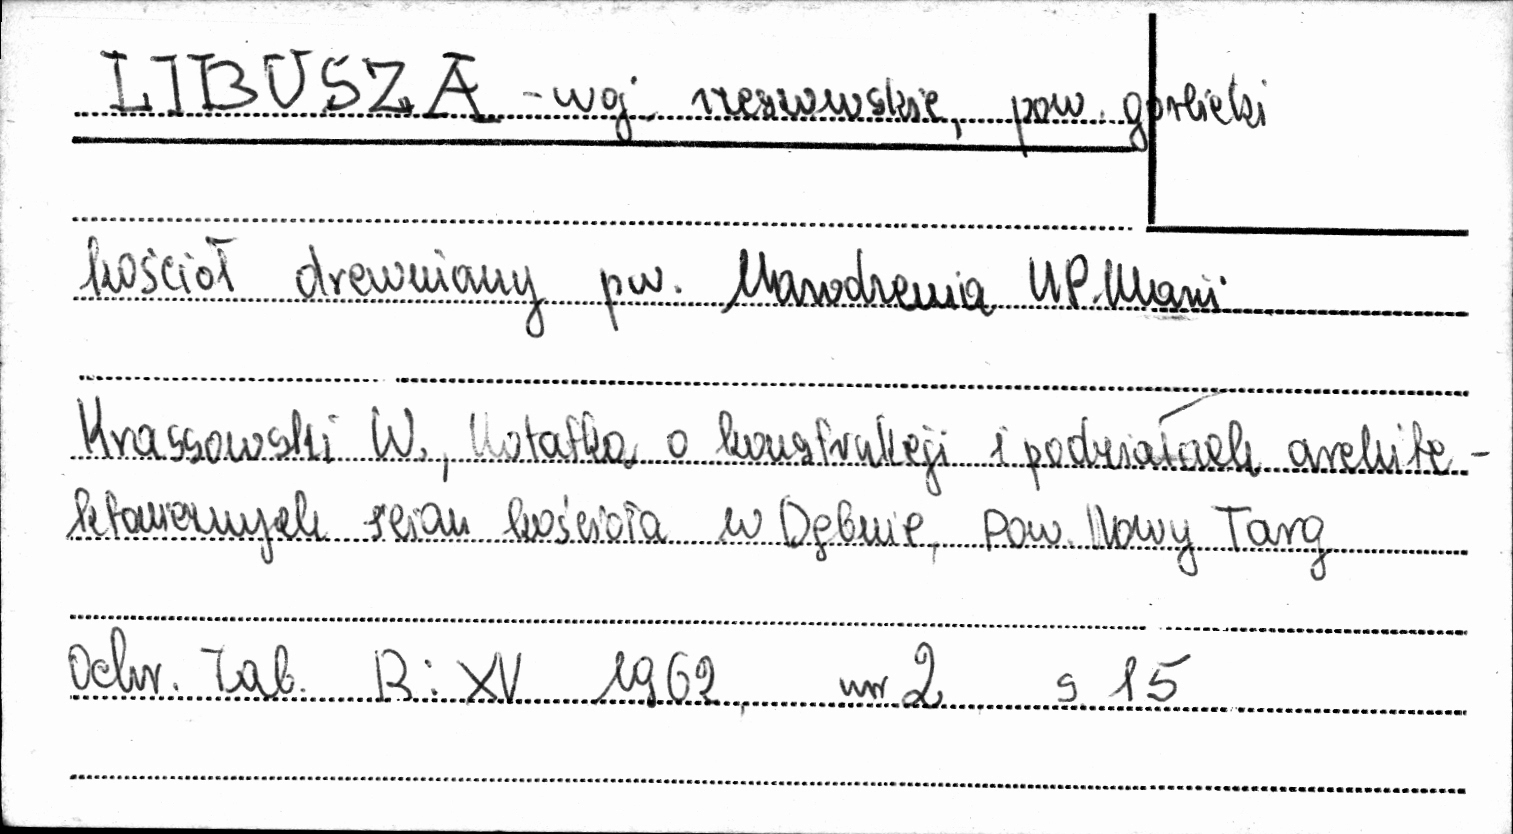 LIBUSZA - woj. rzeszowskie, pow. gorlicki
kościół drewniany pw. Narodzenia NP. Marii
Krassowski W., Notatka o konstrukcji i podziałach archite-
ktonicznych ścian kościoła w Dębnie, pow. Nowy Targ
Ochr. Zab. R: XV 1962, nr 2 s 15